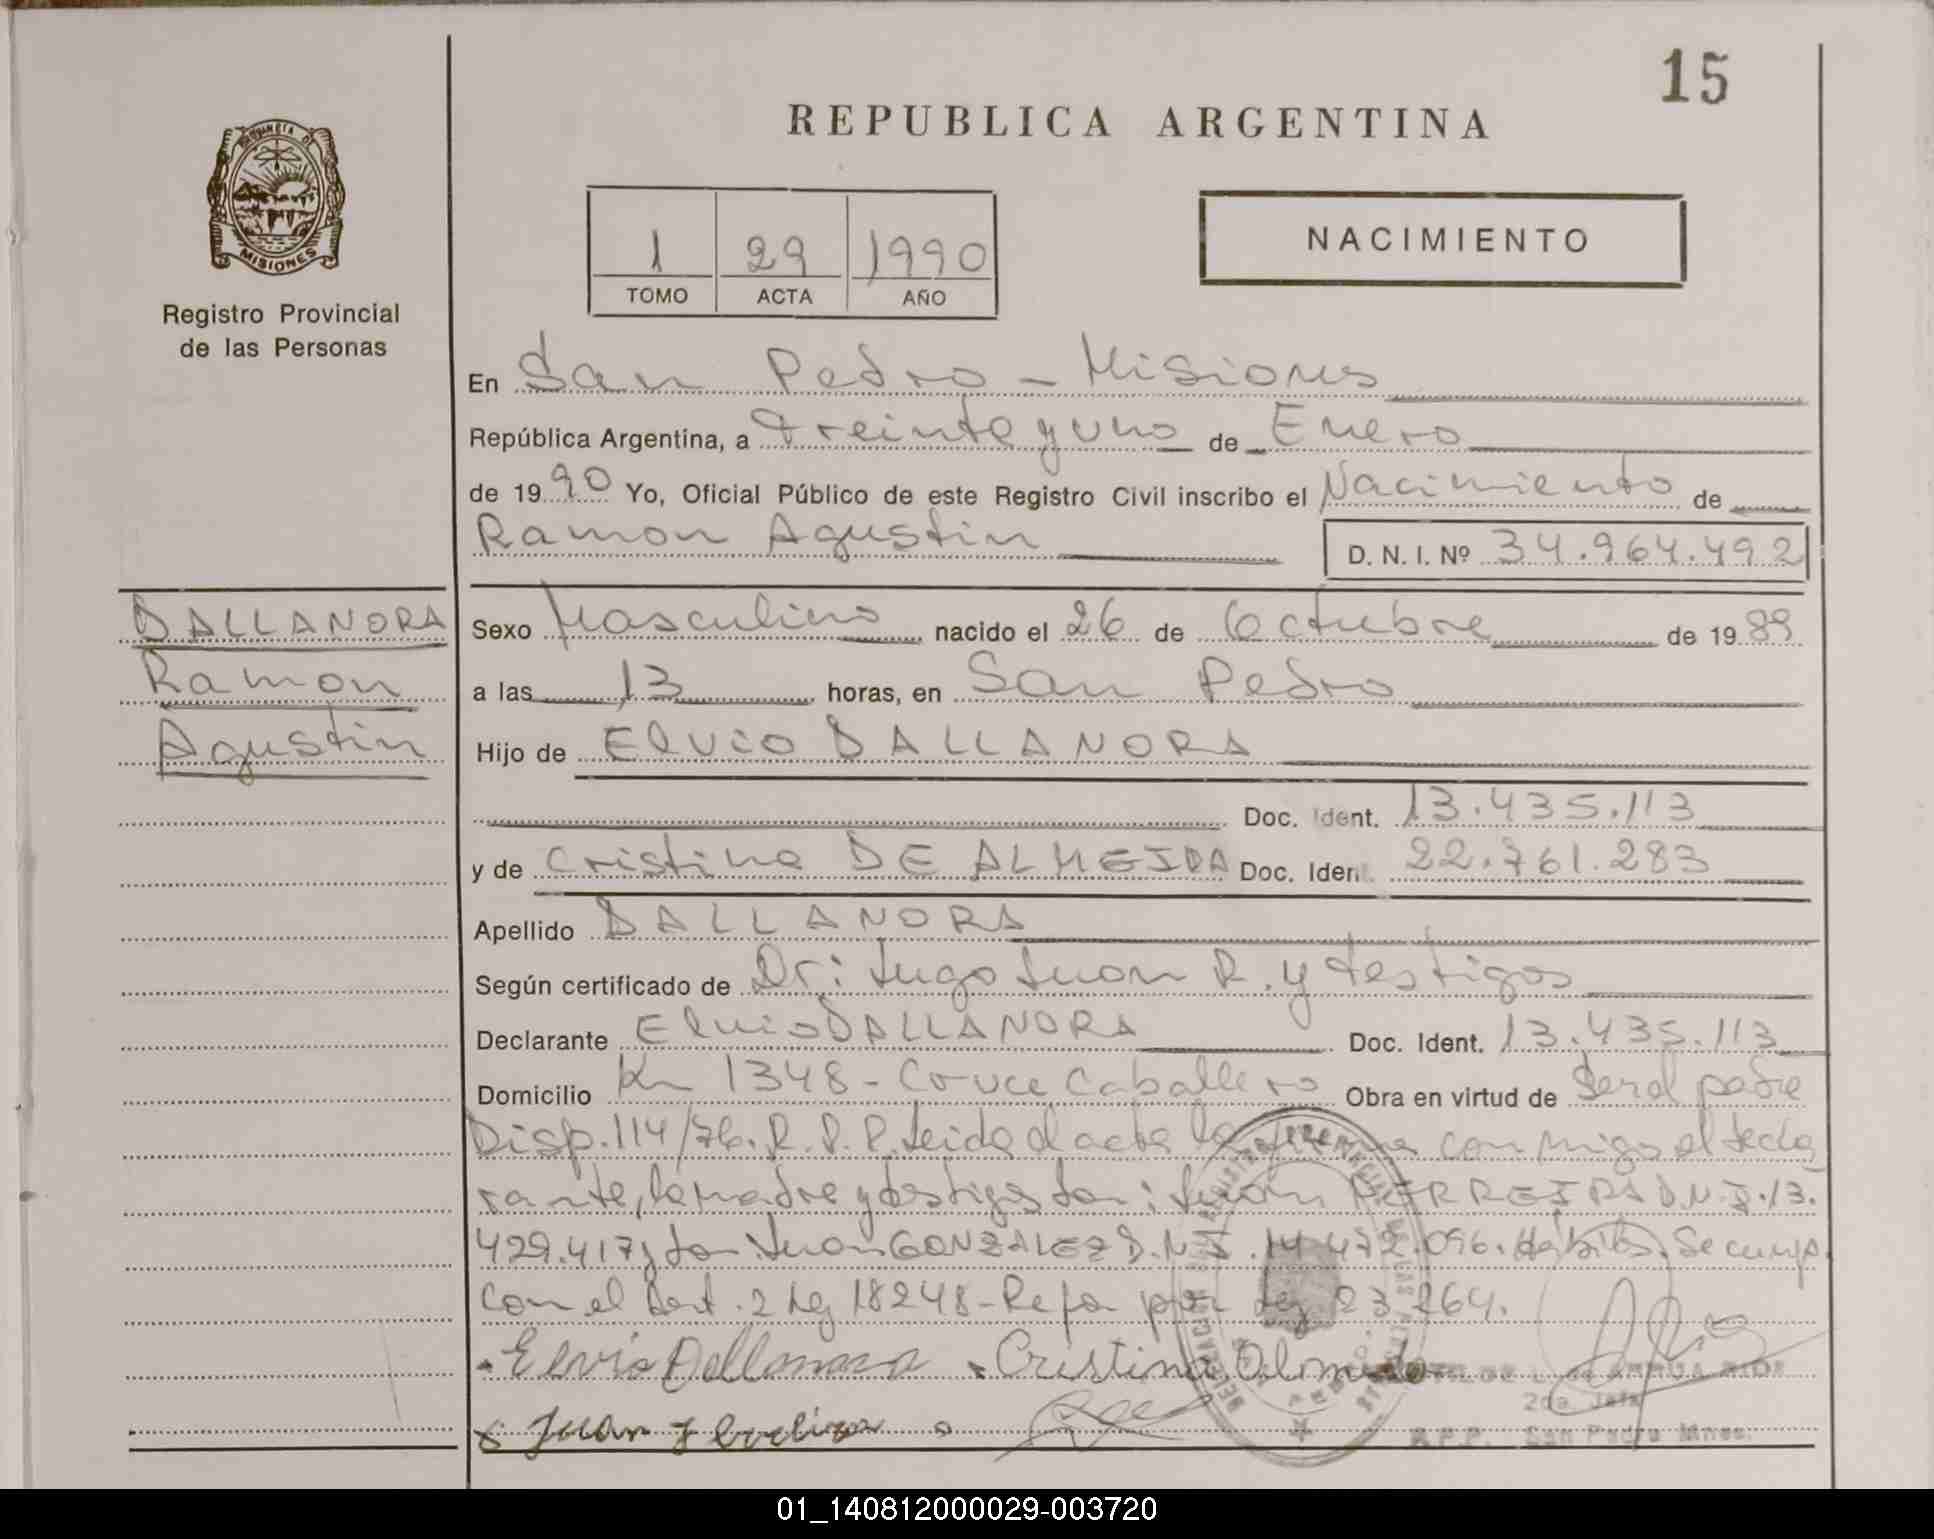 15
REPUBLICA ARGENTINA
PROVINCIA DE
MISIONES
Registro Provincial
de las Personas
1 29 1990
TOMO ACTA AÑO
NACIMIENTO
En San Pedro - Misiones
República Argentina, a treinta y uno de Enero
de 1990 Yo, Oficial Público de este Registro Civil inscribo el Nacimiento de
Ramon Agustin D. N. I. Nº 34.964.492
DALLANORA
Ramon
Agustin
Sexo Masculino nacido el 26 de Octubre de 1989
a las 13 horas, en San Pedro
Hijo de Elvio DALLANORA
Doc. Ident. 13.435.113
y de Cristina DE ALMEIDA Doc. Ident. 22.761.283
Apellido DALLANORA
Según certificado de Dr: Lugo Juan R. y testigos
Declarante Elvio DALLANORA Doc. Ident. 13.435.113
Domicilio Km 1348 - Cruce Caballero Obra en virtud de Ser el padre
Disp. 114/76. R. P. P. Leida el acta la firma conmigo el decla
rante, la madre y testigos Son: Juan FERREIRA D.N.I. 13.
429.417 y Don Juan GONZALEZ D.N.I. 14.472.096. Habiles. Se cump.
con el Art. 2 Ley 18248 - Refor por Ley 23.264.
Elvio Dallanora Cristina
Juan
2da. Jefa
R.P.P. San Pedro Mnes.
01_140812000029-003720